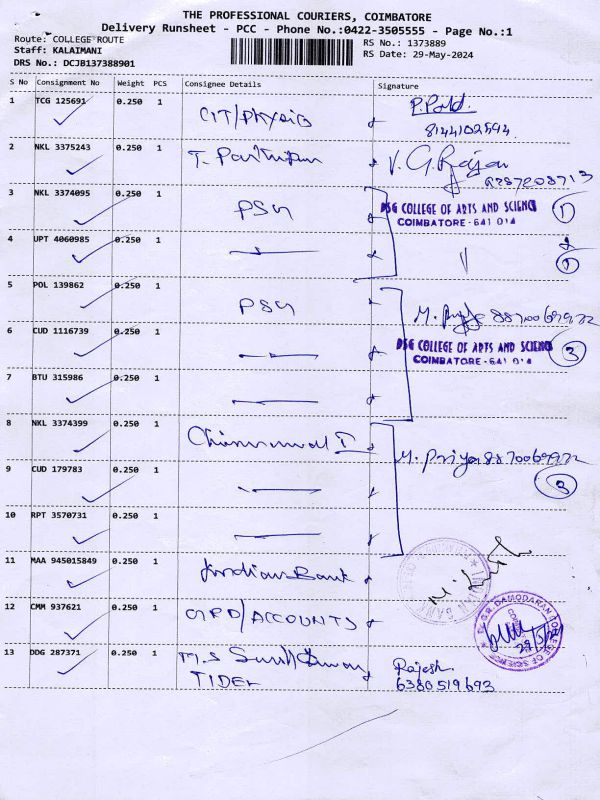 THE PROFESSIONAL COURIERS, COIMBATORE
Delivery Runsheet - PCC - Phone No.:0422-3505555 - Page No.:1
Route: COLLEGE ROUTE
Staff: KALAIMANI
DRS No.: DCJB137388901
RS No.: 1373889
RS Date: 29-May-2024
S No Consignment No Weight PCS Consignee Details Signature
1 TCG 125691 0.250 1 CIT/Physics
8144102594
2 NKL 3375243 0.250 1 T.
V. G. Rajan
3 NKL 3374095 0.250 1 PSG
PSG COLLEGE OF ARTS AND SCIENCE
COIMBATORE - 641 014
1
4 UPT 4060985 0.250 1
5 POL 139862 0.250 1 PSG
8870069972
6 CUD 1116739 0.250 1
PSG COLLEGE OF ARTS AND SCIENCE
COIMBATORE - 641 014
3
7 BTU 315986 0.250 1
8 NKL 3374399 0.250 1
M. Priya 8870069972
3
9 CUD 179783 0.250 1
10 RPT 3570731 0.250 1
11 MAA 945015849 0.250 1 Indian Bank
12 CMM 937621 0.250 1 GRD/ACCOUNTS
Dr. G.R. DAMODARAN COLLEGE OF SCIENCE
13 DDG 287371 0.250 1 M.S
TIDEL
Rajesh
6380519693